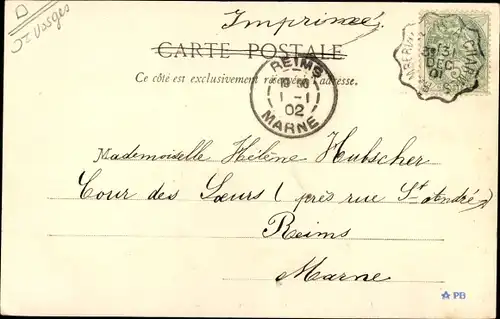 Vosges
Imprimé
CARTE POSTALE
Ce côté est exclusivement réservé à l'adresse.
REIMS
1-1
02
MARNE
13
31
DEC
01
Mademoiselle Hélène Hubscher
Cour des Sœurs (près rue St André)
Reims
Marne
PB